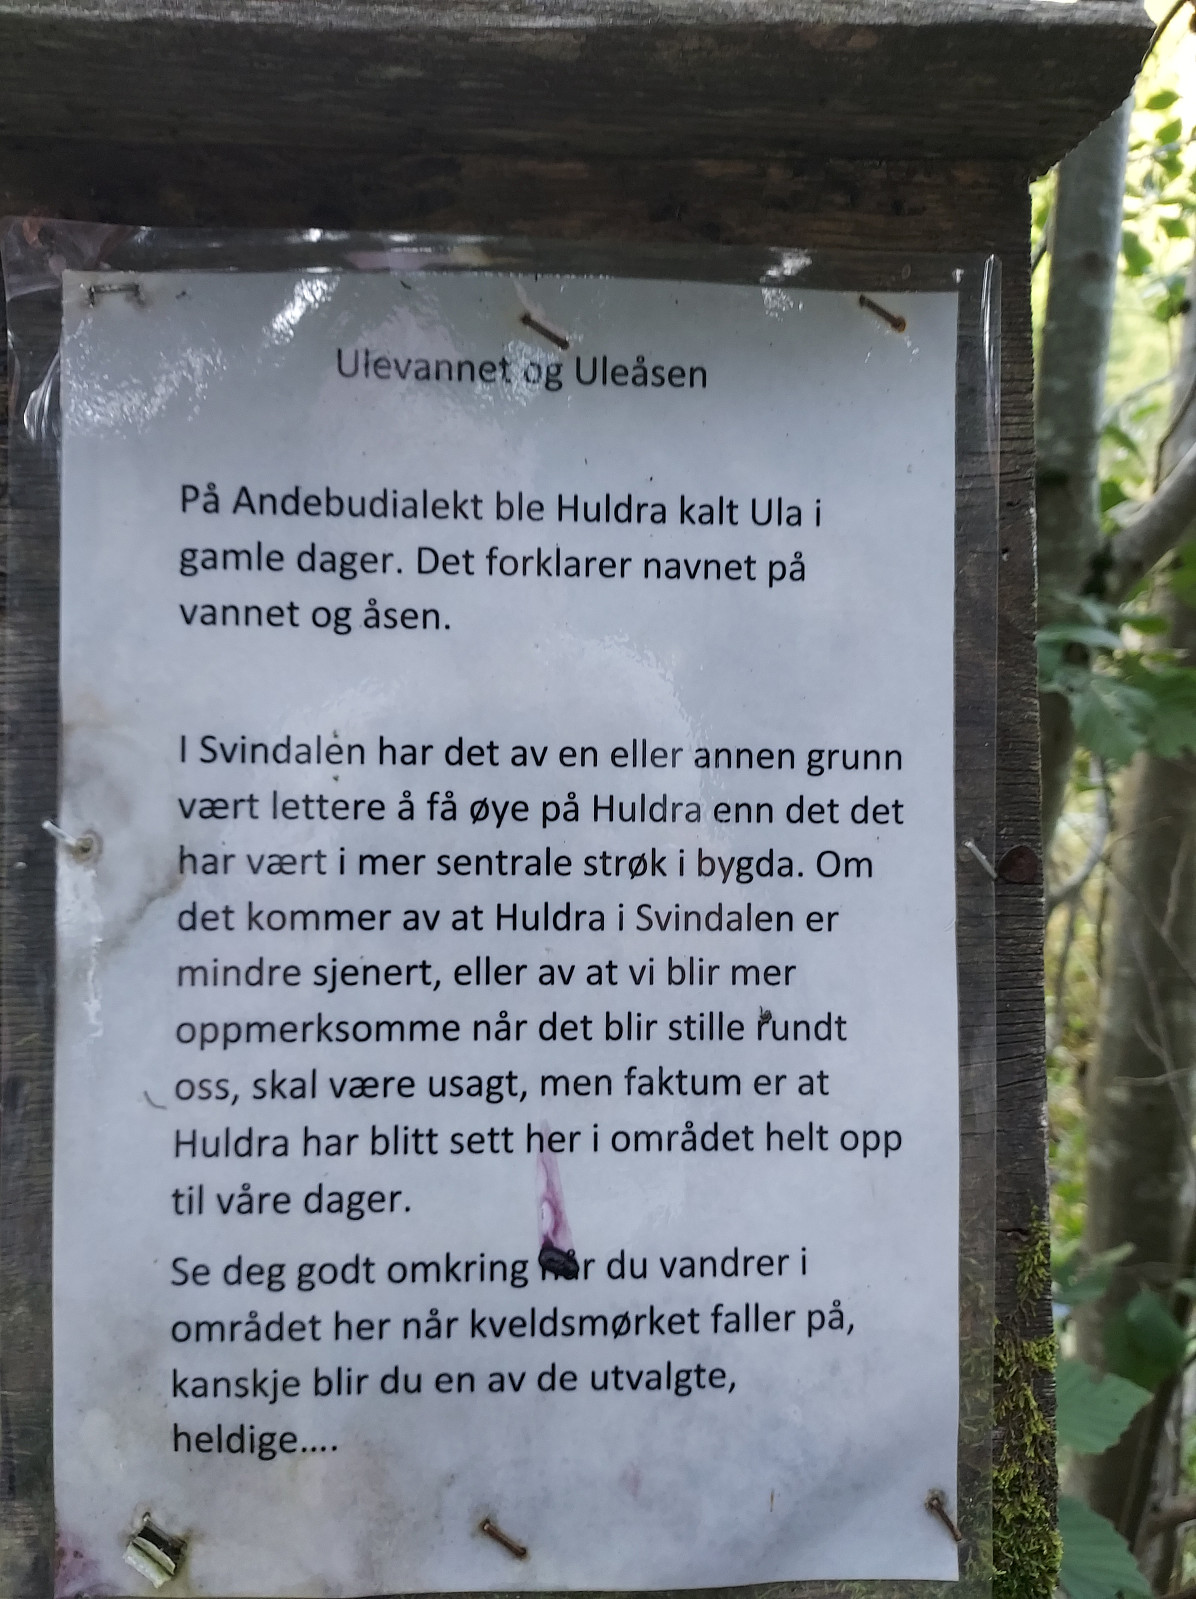 Ulevannet og Uleåsen
På Andebudialekt ble Huldra kalt Ula i
gamle dager. Det forklarer navnet på
vannet og åsen.
I Svindalen har det av en eller annen grunn
vært lettere å få øye på Huldra enn det det
har vært i mer sentrale strøk i bygda. Om
det kommer av at Huldra i Svindalen er
mindre sjenert, eller av at vi blir mer
oppmerksomme når det blir stille rundt
oss, skal være usagt, men faktum er at
Huldra har blitt sett her i området helt opp
til våre dager.
Se deg godt omkring når du vandrer i
området her når kveldsmørket faller på,
kanskje blir du en av de utvalgte,
heldige....